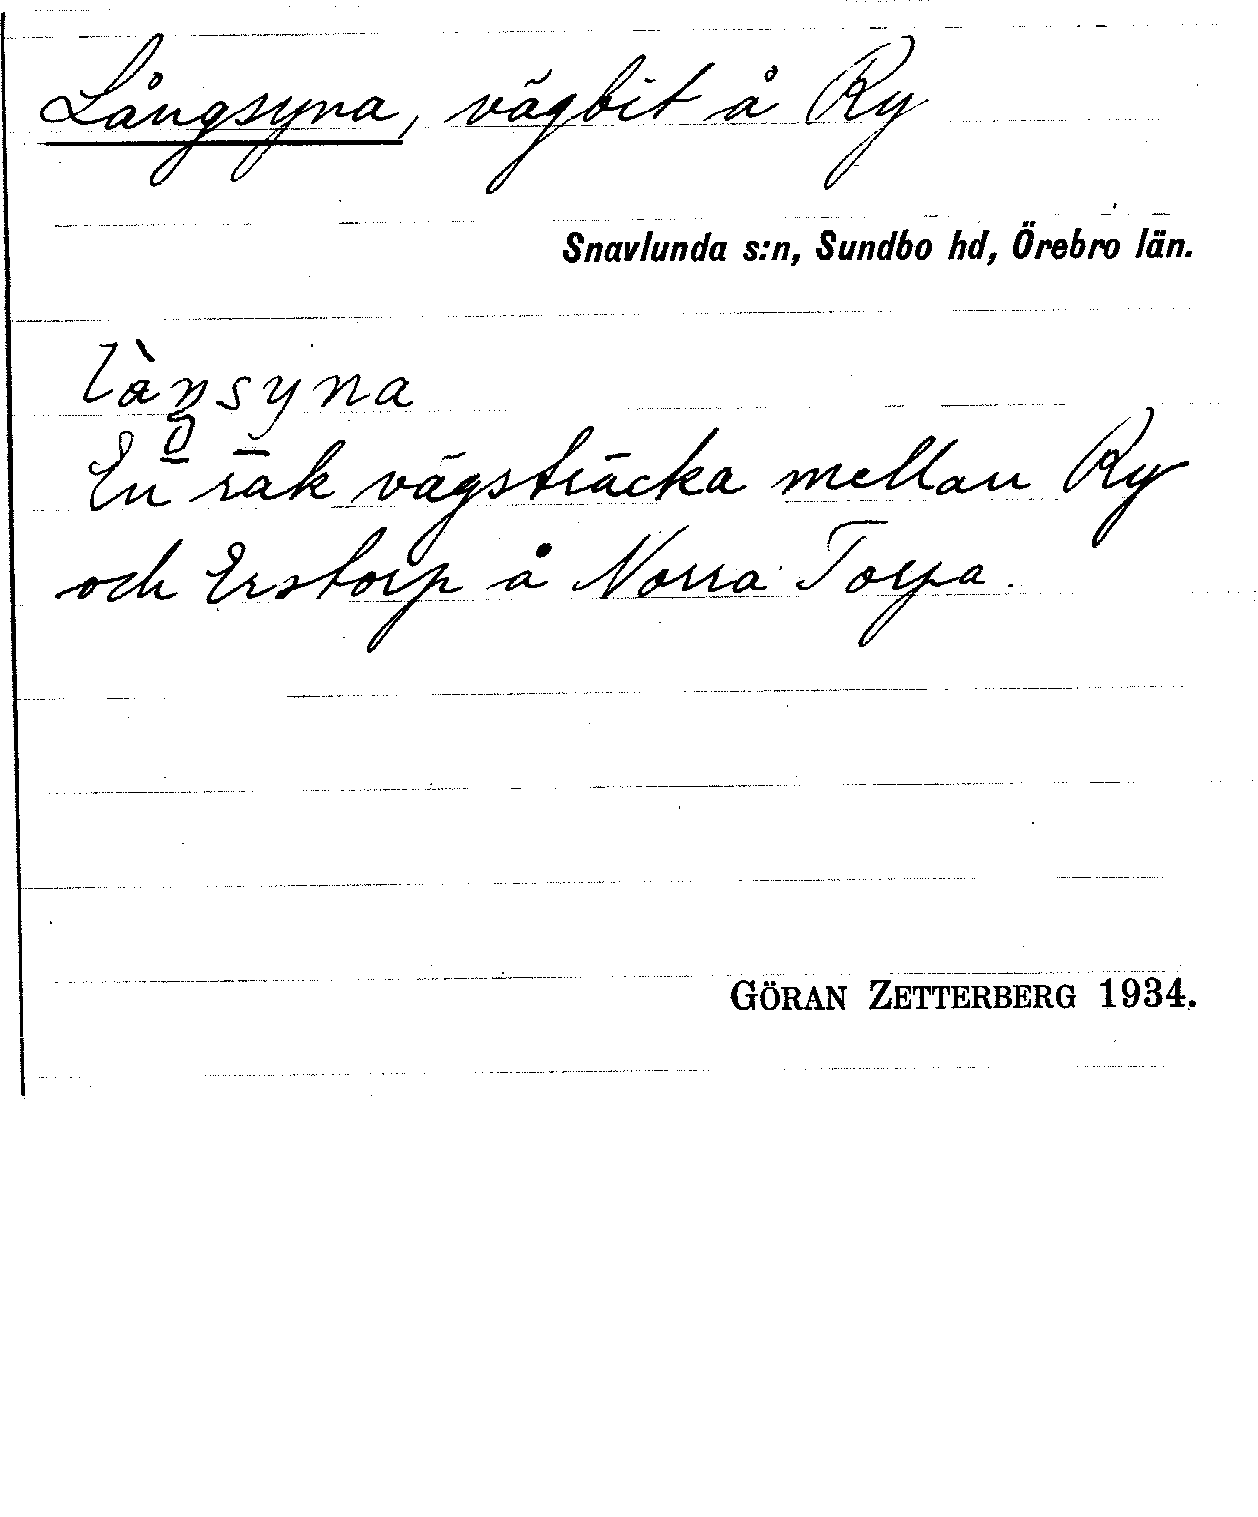 Långsyna, vägbit å Ry
Snavlunda s:n, Sundbo hd, Örebro län.
làŋsyna
En rak vägsträcka mellan Ry
och Erstorp å Norra Torpa.
GÖRAN ZETTERBERG 1934.